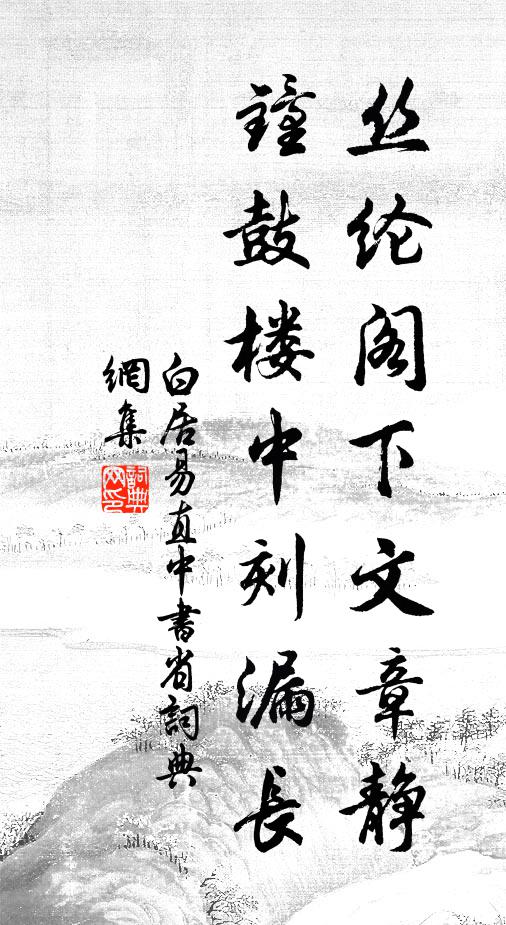 丝纶阁下文章静
鐘鼓楼中刻漏長
白居易直中書省詞典
網集
詞典
网印